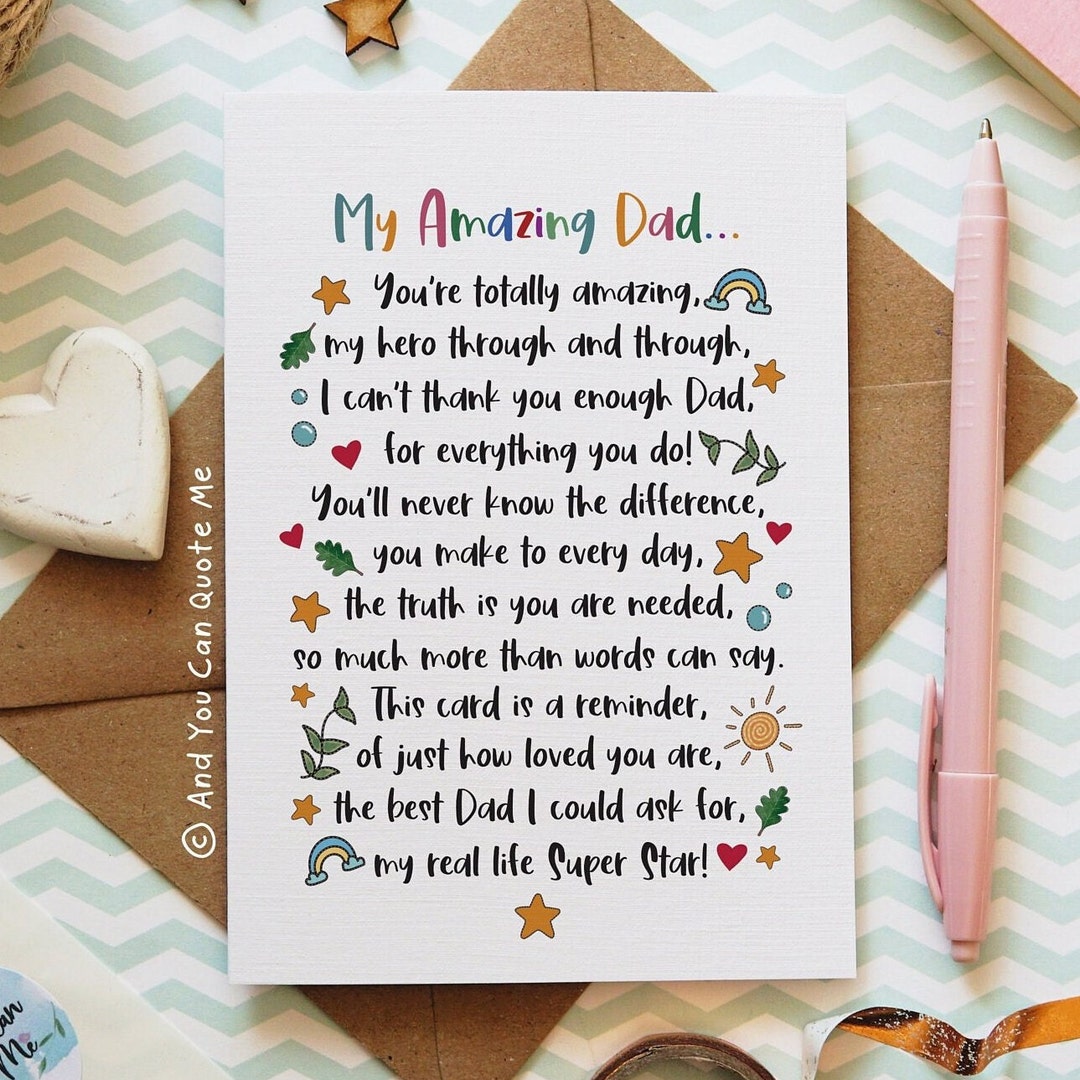 My Amazing Dad...
You're totally amazing,
my hero through and through,
I can't thank you enough Dad,
for everything you do!
You'll never know the difference,
you make to every day,
the truth is you are needed,
so much more than words can say.
This card is a reminder,
of just how loved you are,
the best Dad I could ask for,
my real life Super Star!
© And You Can Quote Me
Me